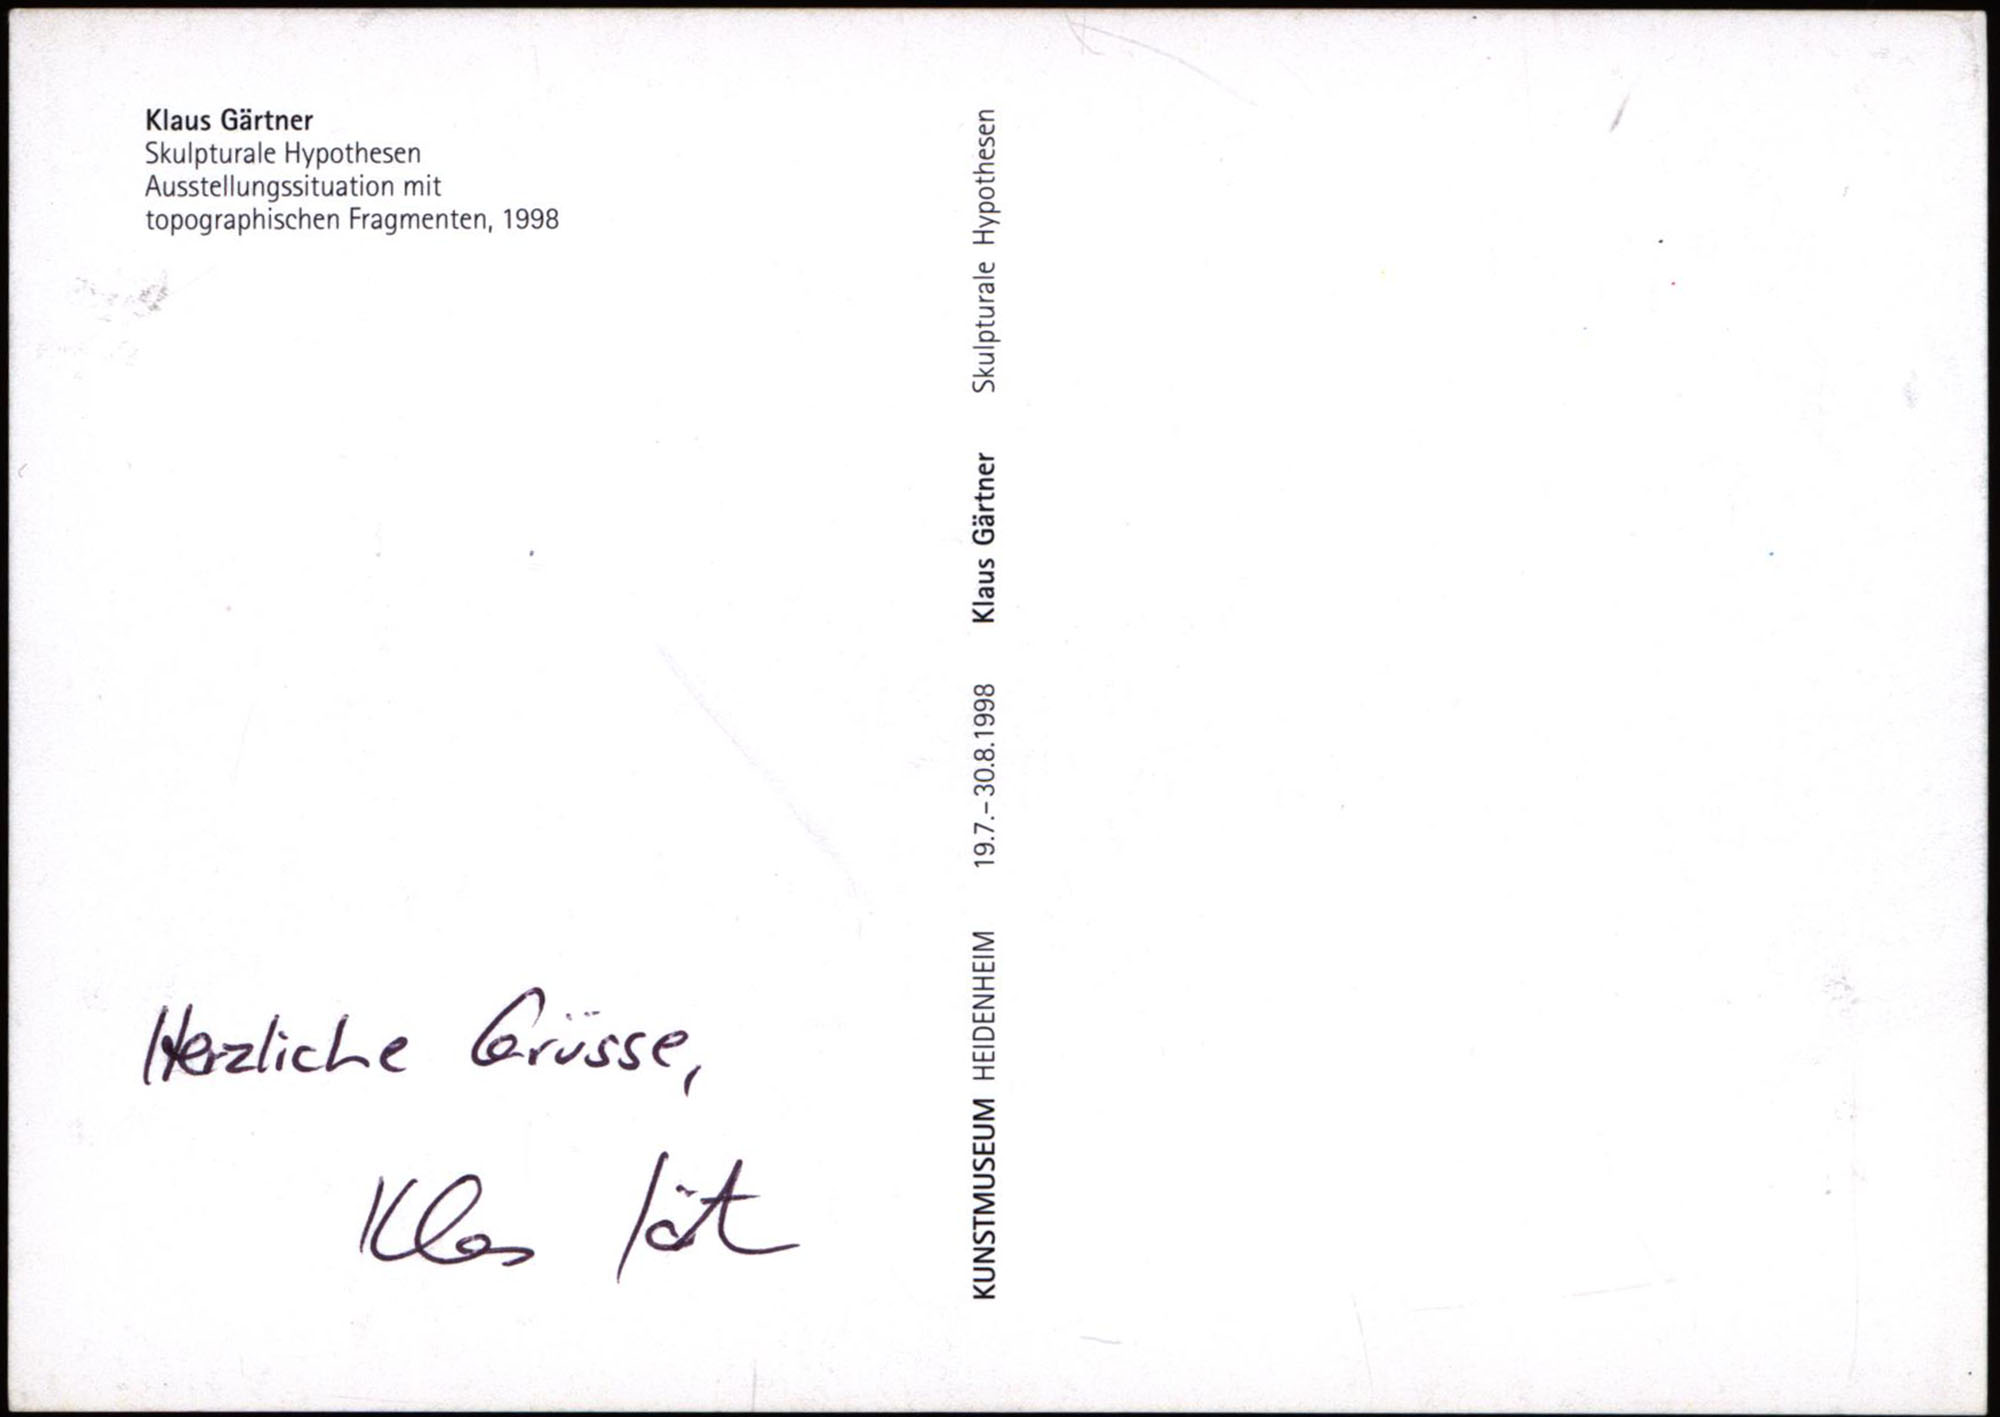 Klaus Gärtner
Skulpturale Hypothesen
Ausstellungssituation mit
topographischen Fragmenten, 1998
KUNSTMUSEUM HEIDENHEIM 19.7.–30.8.1998 Klaus Gärtner Skulpturale Hypothesen
Herzliche Grüsse,